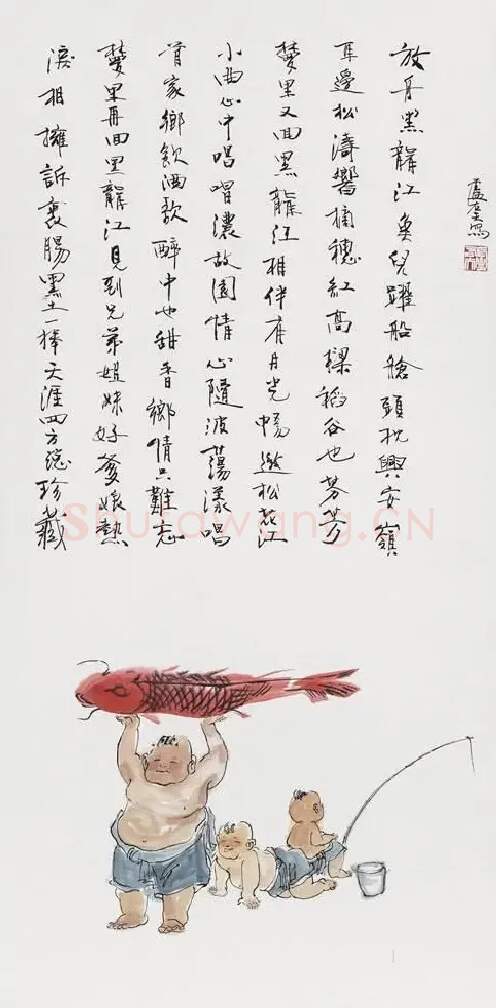 放舟黑龍江魚兒躍船艙頭枕興安嶺
耳邊松濤響摘穗紅高粱稻谷也芬芳
夢里又回黑龍江相伴有月光暢遊松花江
小曲心中唱唱濃故園情心隨波蕩漾唱
首家鄉飲酒歌醉中也甜香鄉情難忘
夢里再回黑龍江見到兄弟姐妹好爹娘熱
淚相擁訴衷腸黑土一捧天涯四方總珍藏
盧寫
Shufawang.CN